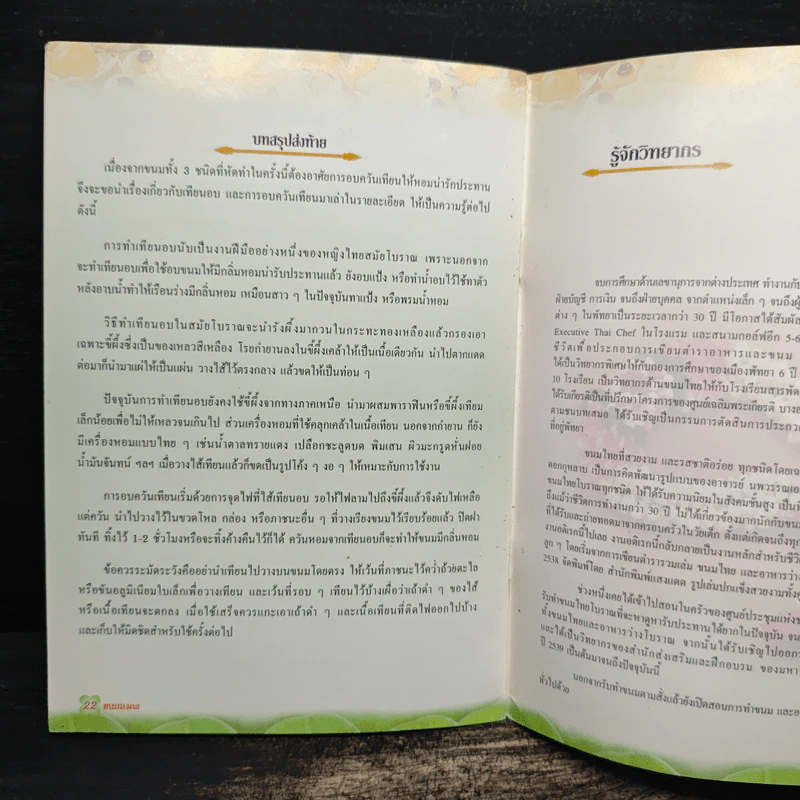 บทสรุปส่งท้าย
เนื่องจากขนมทั้ง 3 ชนิดที่หัดทำในครั้งนี้ต้องอาศัยการอบควันเทียนให้หอมน่ารักประทาน
จึงจะขอนำเรื่องเกี่ยวกับเทียนอบ และการอบควันเทียนมาเล่าในรายละเอียด ให้เป็นความรู้ต่อไป
ดังนี้
การทำเทียนอบนับเป็นงานฝีมืออย่างหนึ่งของหญิงไทยสมัยโบราณ เพราะนอกจาก
จะทำเทียนอบเพื่อใช้อบขนมให้มีกลิ่มหอมน่ารับประทานแล้ว ยังอบแป้ง หรือทำน้ำอบไว้ใช้ทาตัว
หลังอาบน้ำทำให้เรือนร่างมีกลิ่นหอม เหมือนสาว ๆ ในปัจจุบันทาแป้ง หรือพรมน้ำหอม
วิธีทำเทียนอบในสมัยโบราณจะนำรังผึ้งมากวนในกระทะทองเหลืองแล้วกรองเอา
เฉพาะขี้ผึ้งซึ่งเป็นของเหลวสีเหลือง โรยกำยานลงในขี้ผึ้งเคล้าให้เป็นเนื้อเดียวกัน นำไปตากแดด
ต่อมาก็นำมาแผ่ให้เป็นแผ่น วางไส้ไว้ตรงกลาง แล้วขดให้เป็นท่อน ๆ
ปัจจุบันการทำเทียนอบยังคงใช้ขี้ผึ้งจากทางภาคเหนือ นำมาผสมพาราฟินหรือขี้ผึ้งเทียม
เล็กน้อยเพื่อไม่ให้เหลวจนเกินไป ส่วนเครื่องหอมที่ใช้คลุกเคล้าในเนื้อเทียน นอกจากกำยาน ก็ยัง
มีเครื่องหอมแบบไทย ๆ เช่นน้ำตาลทรายแดง เปลือกชะลูดบด พิมเสน ผิวมะกรูดหั่นฝอย
น้ำมันจันทน์ ฯลฯ เมื่อวางไส้เทียนแล้วก็ขดเป็นรูปโค้ง ๆ งอ ๆ ให้เหมาะกับการใช้งาน
การอบควันเทียนเริ่มด้วยการจุดไฟที่ไส้เทียนอบ รอให้ไฟลามไปถึงขี้ผึ้งแล้วจึงดับไฟเหลือ
แต่ควัน นำไปวางไว้ในขวดโหล กล่อง หรือภาชนะอื่น ๆ ที่วางเรียงขนมไว้เรียบร้อยแล้ว ปิดฝา
ทันที ทิ้งไว้ 1-2 ชั่วโมงหรือจะทิ้งค้างคืนไว้ก็ได้ ควันหอมจากเทียนอบก็จะทำให้ขนมมีกลิ่นหอม
ข้อควรระมัดระวังคืออย่านำเทียนอบไปวางบนขนมโดยตรง ให้เว้นที่ภาชนะไว้คว่ำถ้วยตะไล
หรือขันอลูมิเนียมใบเล็กเพื่อวางเทียน และเว้นที่รอบ ๆ เทียนไว้บ้างเผื่อว่าเถ้าดำ ๆ ของไส้
หรือเนื้อเทียนจะตกลง เมื่อใช้เสร็จควรแกะเอาเถ้าดำ ๆ และเนื้อเทียนที่ติดไฟออกไปบ้าง
และเก็บให้มิดชิดสำหรับใช้ครั้งต่อไป
22
รู้จักวิทยากร
จบการศึกษาด้านเลขานุการจากต่างประเทศ ทำงานกับ
ฝ่ายบัญชี การเงิน จนถึงฝ่ายบุคคล จากตำแหน่งเล็ก ๆ จนถึงผู้
ต่าง ๆ ในพัทยาเป็นระยะเวลากว่า 30 ปี มีโอกาสได้สัมผัส
Executive Thai Chef ในโรงแรม และสนามกอล์ฟอีก 5-6
ชีวิตเพื่อประกอบการเขียนตำราอาหารและขนม
ได้เป็นวิทยากรพิเศษให้กับกองการศึกษาของเมืองพัทยา 6 ปี
10 โรงเรียน เป็นวิทยากรด้านขนมไทยให้กับโรงเรียนสารพัด
ได้รับเกียรติเป็นที่ปรึกษาโครงการของศูนย์เฉลิมพระเกียรติ บางละ
ตามชนบทเสมอ ได้รับเชิญเป็นกรรมการตัดสินการประกวด
ที่อยู่พัทยา
ขนมไทยที่สวยงาม และรสชาติอร่อย ทุกชนิดโดยเฉ
ดอกกุหลาบ เป็นการคิดพัฒนารูปแบบของอาจารย์ นพวรรณเอ
ขนมไทยโบราณทุกชนิด ให้ได้รับความนิยมในสังคมชั้นสูง เป็นที่
ถึงแม้ว่าชีวิตการทำงานกว่า 30 ปี ไม่ได้เกี่ยวข้องมากนักกับขนม
ที่ได้รับและถ่ายทอดมาจากครอบครัวในวัยเด็ก ตั้งแต่เกิดจนถึงทุก
งานอดิเรกนี้ไปเลย งานอดิเรกนี้กลับกลายเป็นงานหลักสำหรับชีวิต
ลูก ๆ โดยเริ่มจากการเขียนตำรารวมเล่ม ขนมไทย และอาหารว่าง
2538 จัดพิมพ์โดย สำนักพิมพ์แสงแดด รูปเล่มปกแข็งสวยงามทั้ง
ช่วงหนึ่งเคยได้เข้าไปสอนในครัวของศูนย์ประชุมแห่งช
รับทำขนมไทยโบราณที่จะหาดูหารับประทานได้ยากในปัจจุบัน จน
ทั้งขนมไทยและอาหารว่างโบราณ จากนั้นได้รับเชิญไปออก
และได้เป็นวิทยากรของสำนักส่งเสริมและฝึกอบรม ของมหา
ปี 2539 เป็นต้นมาจนถึงปัจจุบันนี้
นอกจากรับทำขนมตามสั่งแล้วยังเปิดสอนการทำขนม และอ
ทั่วไปด้วย